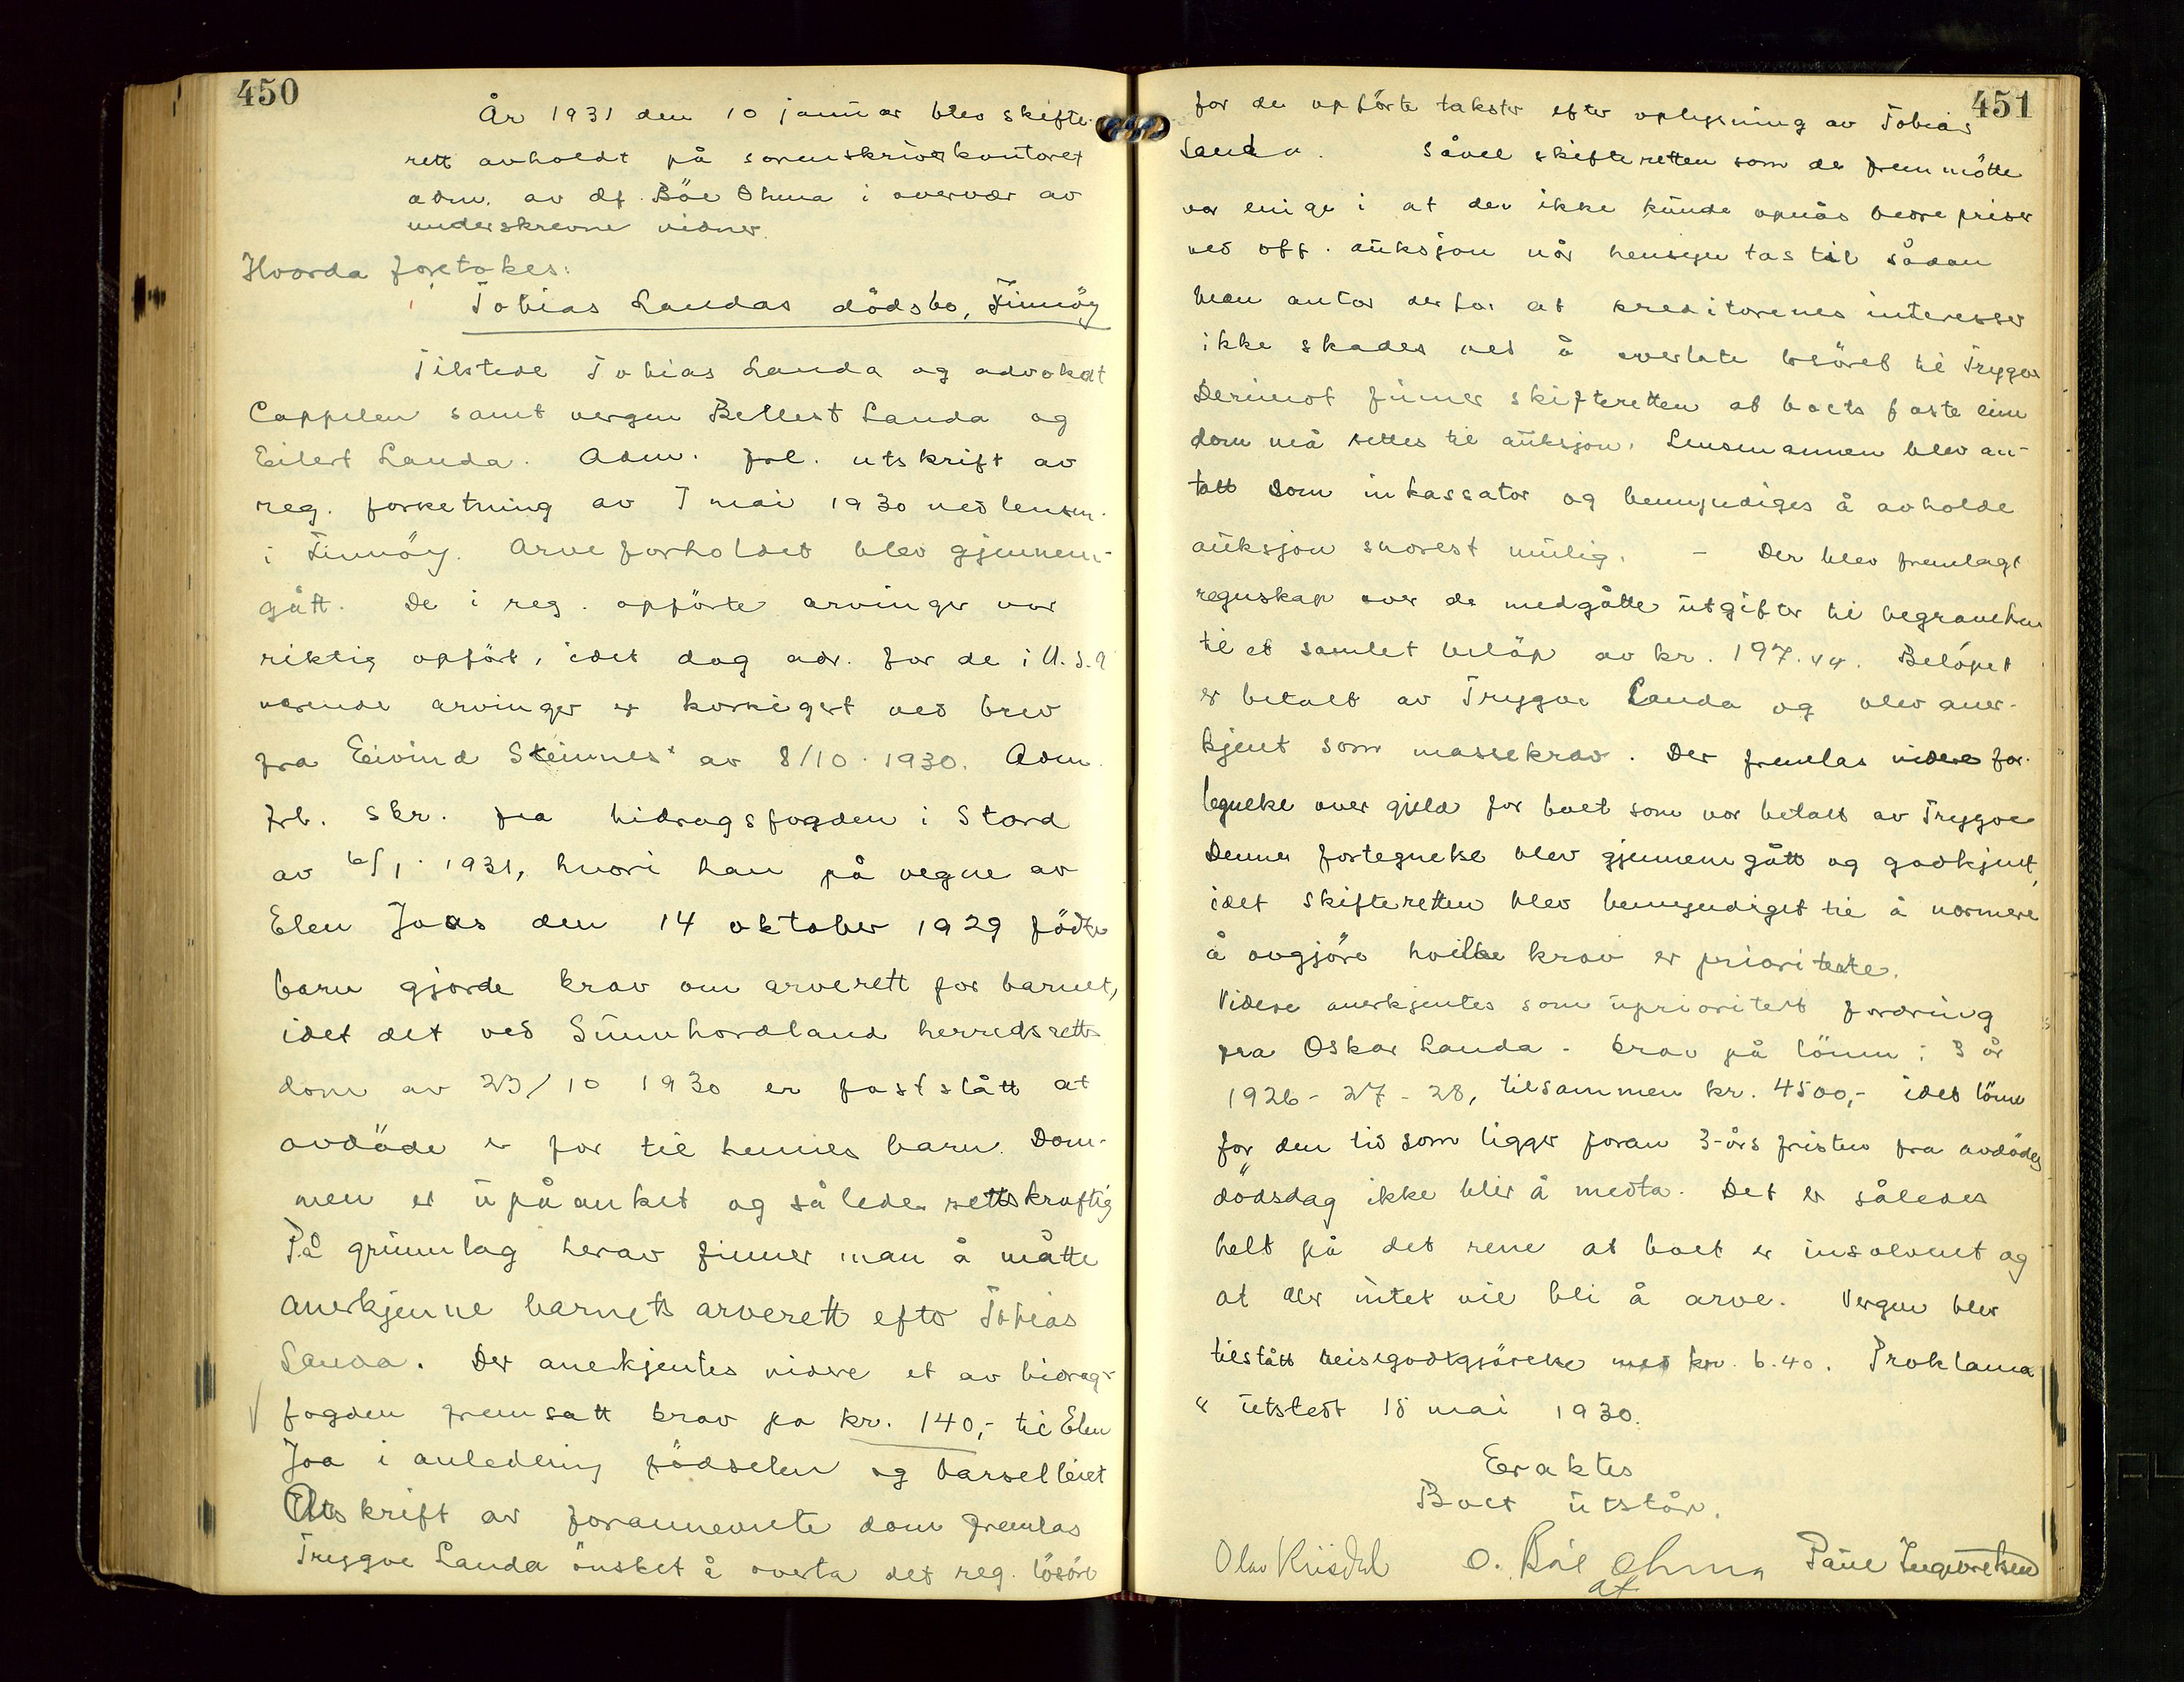 450
År 1931 den 10 januar blev skifte-
rett avholdt på sorenskriverkontoret
adm. av df. Böe Ohma i overvær av
underskrevne vidner.
Hvorda foretokes:
Tobias Landas dödsbo, Finnöy
Tilstede Tobias Landa og advokat
Cappelen samt vergen Bellest Landa og
Eilert Landa. Adm. frl. utskrift av
reg. forretning av 7 mai 1930 ved lensm.
i Finnöy. Arveforholdet blev gjennem-
gått. De i reg. opförte arvinger var
riktig opfört, idet dog adr. for de i U.S.A
værende arvinger er korrigert ved brev
fra Eivind Steinnes av 8/10. 1930. Adm.
frl. skr. fra bidragsfogden i Stord
av 6/1. 1931, hvori han på vegne av
Elen Joas den 14 oktober 1929 födte
barn gjorde krav om arverett for barnet,
idet det ved Sunnhordland herredsretts
dom av 23/10 1930 er fastslått at
avdöde er far til hennes barn. Dom-
men er upåanket og således rettskraftig
På grunnlag herav finner man å måtte
anerkjenne barnets arverett efter Tobias
Landa. Der anerkjentes videre et av bidrags-
fogden fremsatt krav på kr. 140,- til Elen
Joa i anledning födselen og barselleiet
Utskrift av forannevnte dom fremlas
Trygve Landa önsket å overta det reg. lösöre
451
for de opförte takster efter oplysning av Tobias
Landa. Såvel skifteretten som de fremmötte
var enige i at der ikke kunde opnås bedre priser
ved off. auksjon når hensyn tas til sådan
Man antar derfor at kreditorenes interesser
ikke skades ved å overlate lösöret til Trygve
Derimot finner skifteretten at boets faste eien
dom må settes til auksjon. Lensmannen blev an-
tatt som inkassator og bemyndiges å avholde
auksjon snarest mulig. - Der blev fremlagt
regnskap over de medgåtte utgifter til begravelsen
til et samlet belöp av kr. 197.44. Belöpet
er betalt av Trygve Landa og blev aner-
kjent som massekrav. Der fremlas videre for-
tegnelse over gjeld for boet som var betalt av Trygve
Denne fortegnelse blev gjennemgått og godkjent,
idet skifteretten blev bemyndiget til å nærmere
å avgjöre hvilke krav er prioriterte.
Videre anerkjentes som uprioritert fordring
fra Oskar Landa - krav på lönn i 3 år
1926 - 27 - 28, tilsammen kr. 4500,- idet lönn
for den tid som ligger foran 3-års fristen fra avdödes
dödsdag ikke blir å medta. Det er således
helt på det rene at boet er insolvent og
at der intet vil bli å arve. Vergen blev
tilstått reisegodtgjörelse med kr. 6.40. Proklama
er utstedt 18 mai 1930.
Eraktes
Boet utstår.
Olav Riisdal O. Böe Ohma Paul Ingvoretsen
at